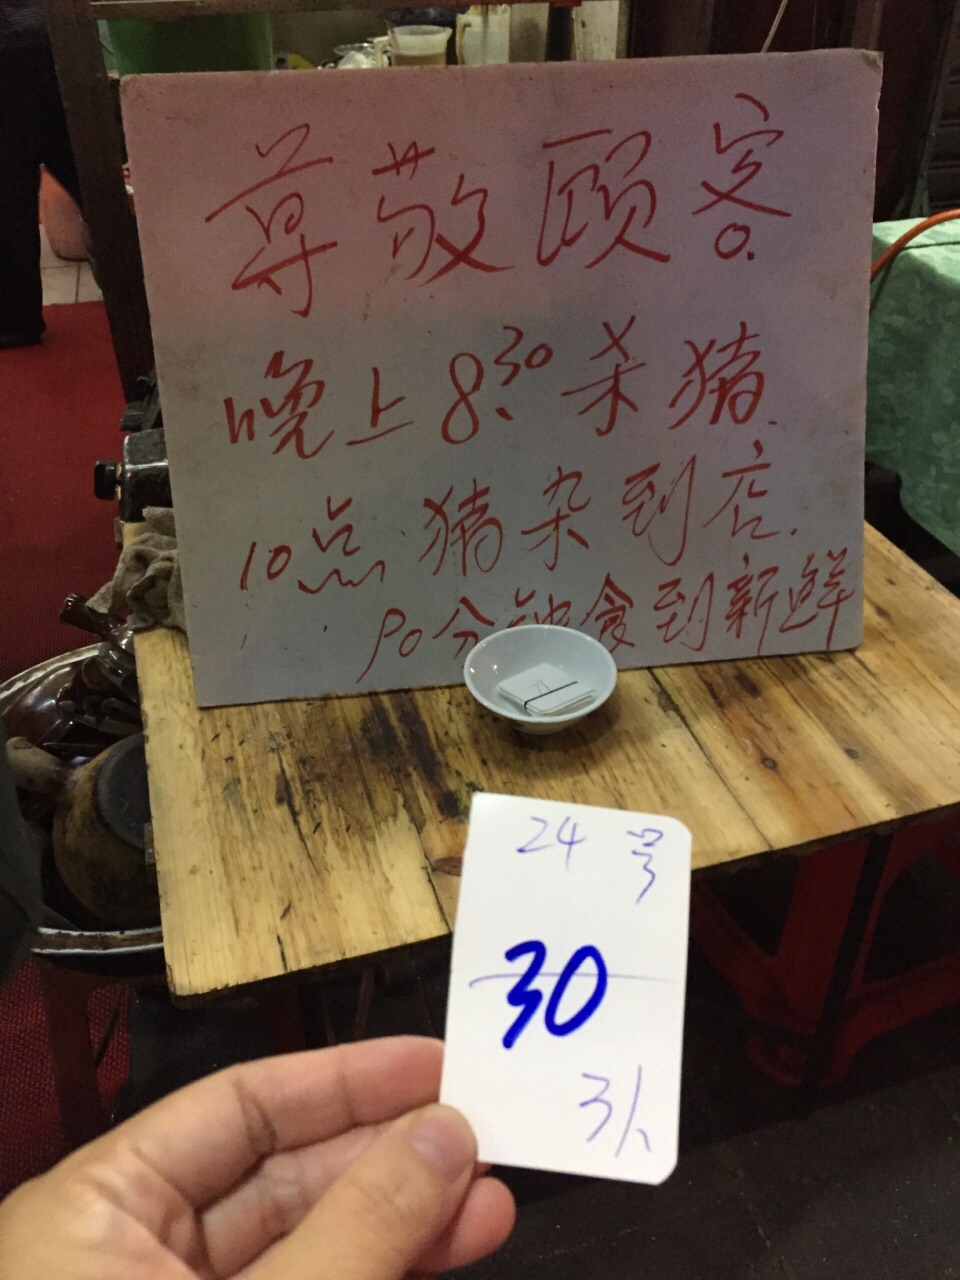 尊敬顾客
晚上8:30杀猪.
10点猪杂到店.
90分钟食到新鲜
24号
30
3人